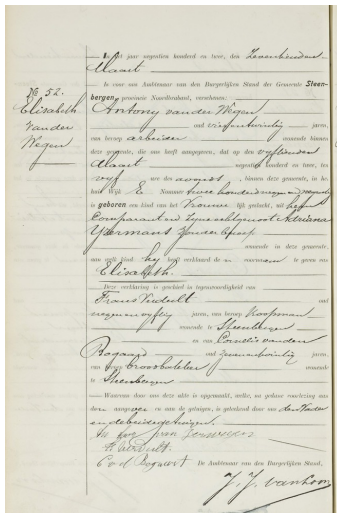 No 52.
Elisabeth
van der
Wegen
In het jaar negentien honderd en twee, den zeventienden
Maart
is voor ons Ambtenaar van den Burgerlijken Stand der Gemeente Steen-
bergen, provincie Noordbrabant, verschenen:
Antony van der Wegen
oud vijfentwintig jaren,
van beroep arbeider wonende binnen
deze gemeente, die ons heeft aangegeven, dat op den vijftienden
Maart negentien honderd en twee, ten
vijf ure des avonds, binnen deze gemeente, in het
huis Wijk E Nummer twee honderd
is geboren een kind van het Vrouwelijk geslacht, uit hem
Comparant en zijne echtgenoot Adriana
IJzermans zonder beroep
wonende in deze gemeente,
aan welk kind hij heeft verklaard de n voornaam te geven van
Elisabeth.
Deze verklaring is geschied in tegenwoordigheid van
Frans Verdult oud
negenenvijftig jaren, van beroep Koopman
wonende te Steenbergen
en van Cornelis van den
Bogaard oud zevenentwintig jaren,
van beroep wonende
te Steenbergen
Waarvan door ons deze akte is opgemaakt, welke, na gedane voorlezing aan
den aangever en aan de getuigen, is geteekend door ons den Vader
en de beide getuigen.
F Verdult
C v d Bogaert
De Ambtenaar van den Burgerlijken Stand,
J. J. van Loon